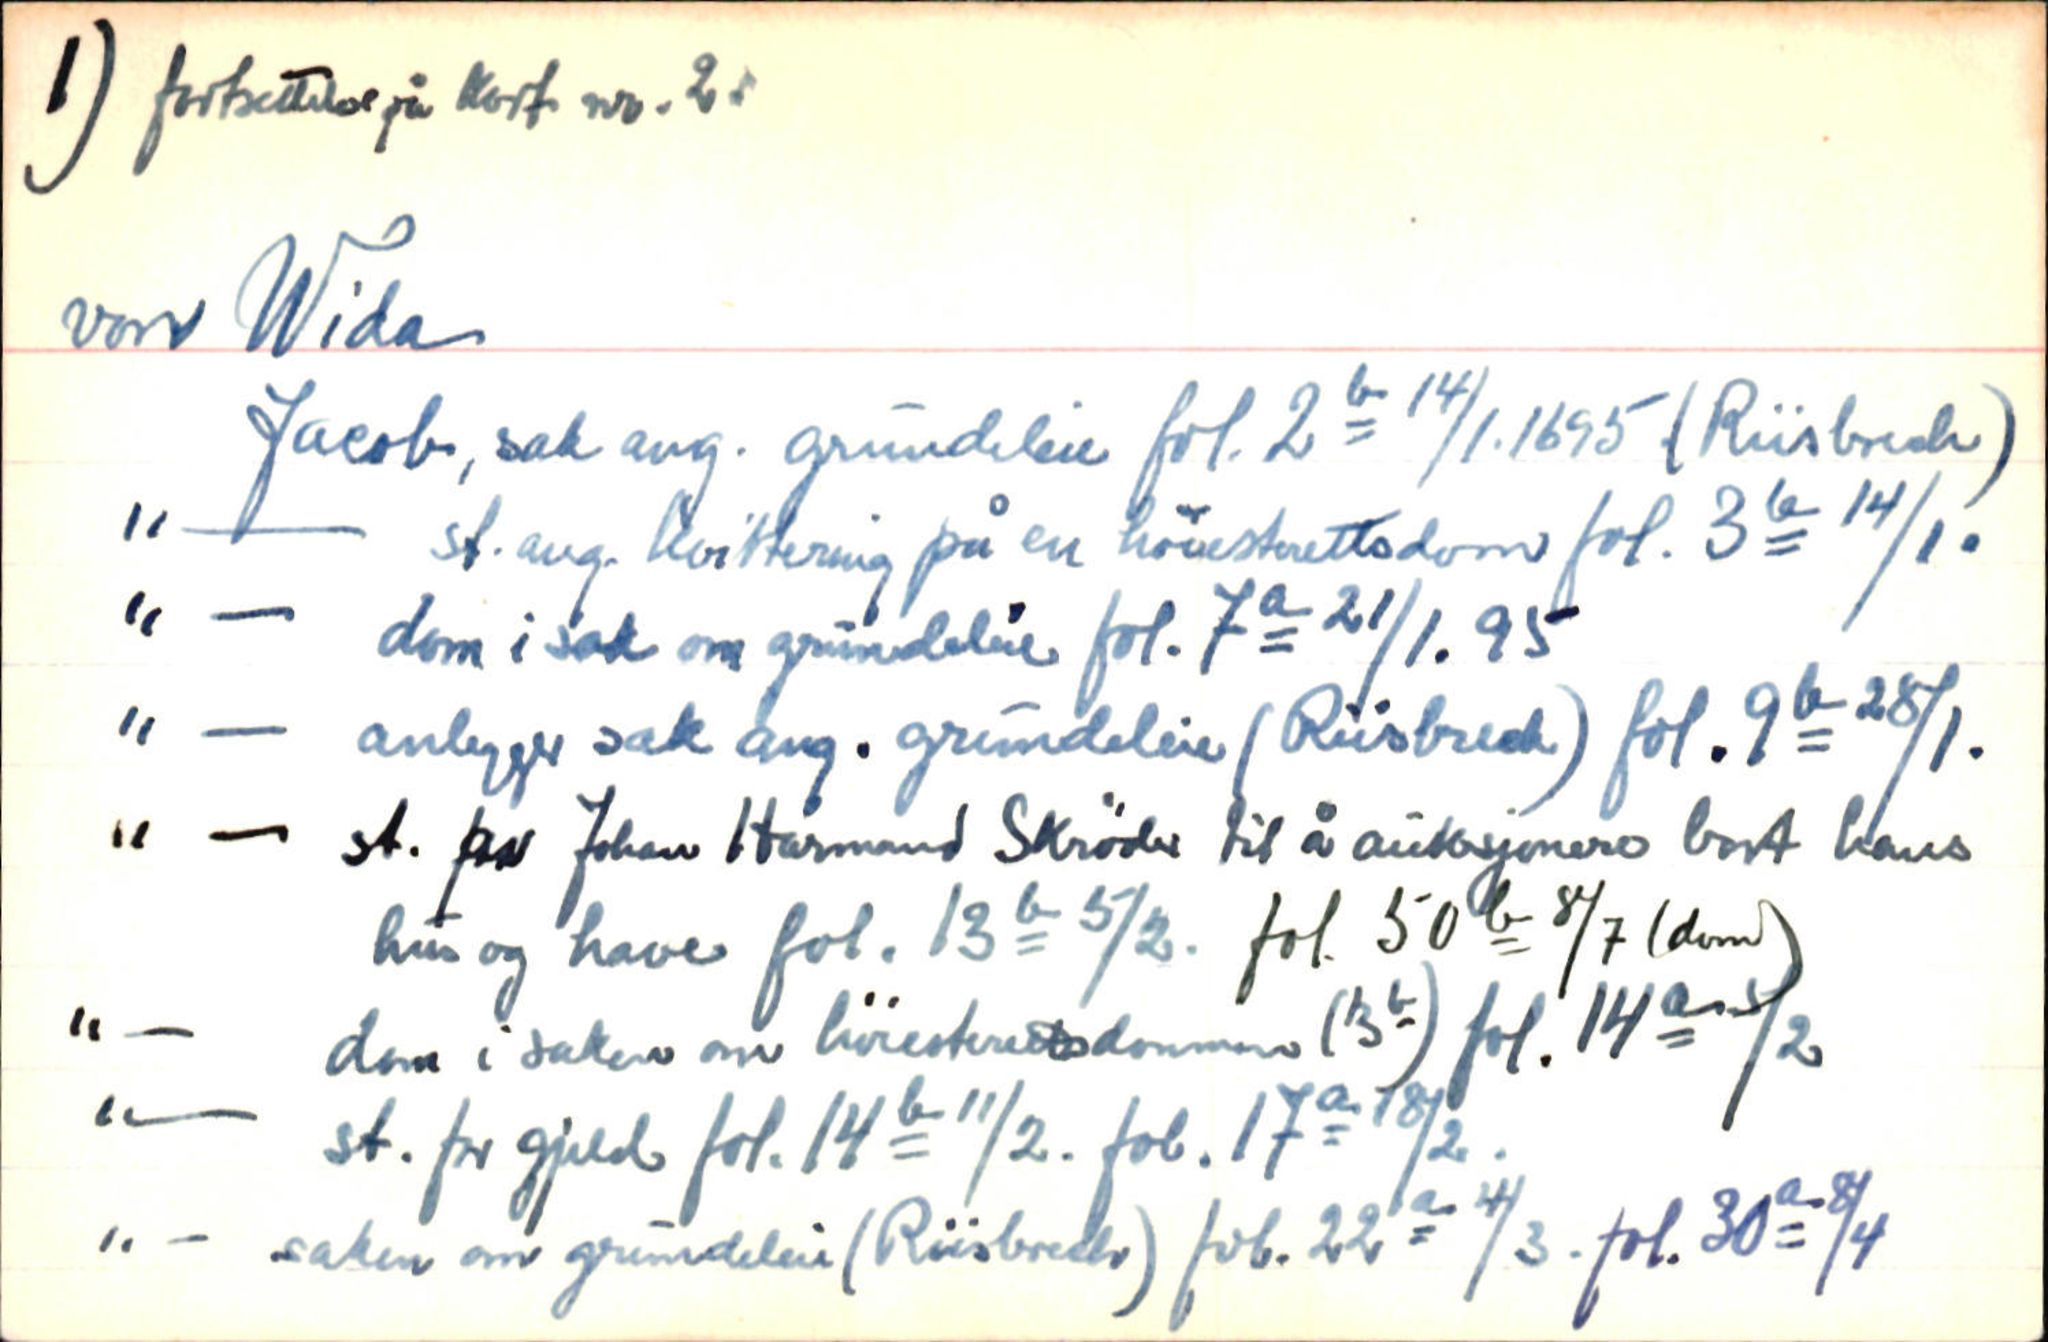 1) fortsettelse på kort nr. 2.
von Wida
Jacob, sak ang. grundeleie fol. 2 b 14/1. 1695 (Riisbrech)
"— st. ang. kvittering på en höiesterettsdom fol. 3 b 14/1.
" — dom i sak om grundeleie fol. 7 a 21/1. 95
" — anlegger sak ang. grundeleie (Riisbrech) fol. 9 b 28/1.
" — st. av Johan Harmand Skröder til å auksjonere bort hans
hus og have fol. 13 b 5/2. fol. 50 b 8/7 (dom)
" — dom i saken om höiesterettsdommen (3 b) fol. 14 a 5/2
"— st. for gjeld fol. 14 b 11/2. fol. 17 a 18/2.
" — saken om grundeleie (Riisbrech) fol. 22 a 4/3. fol. 30 a 8/4